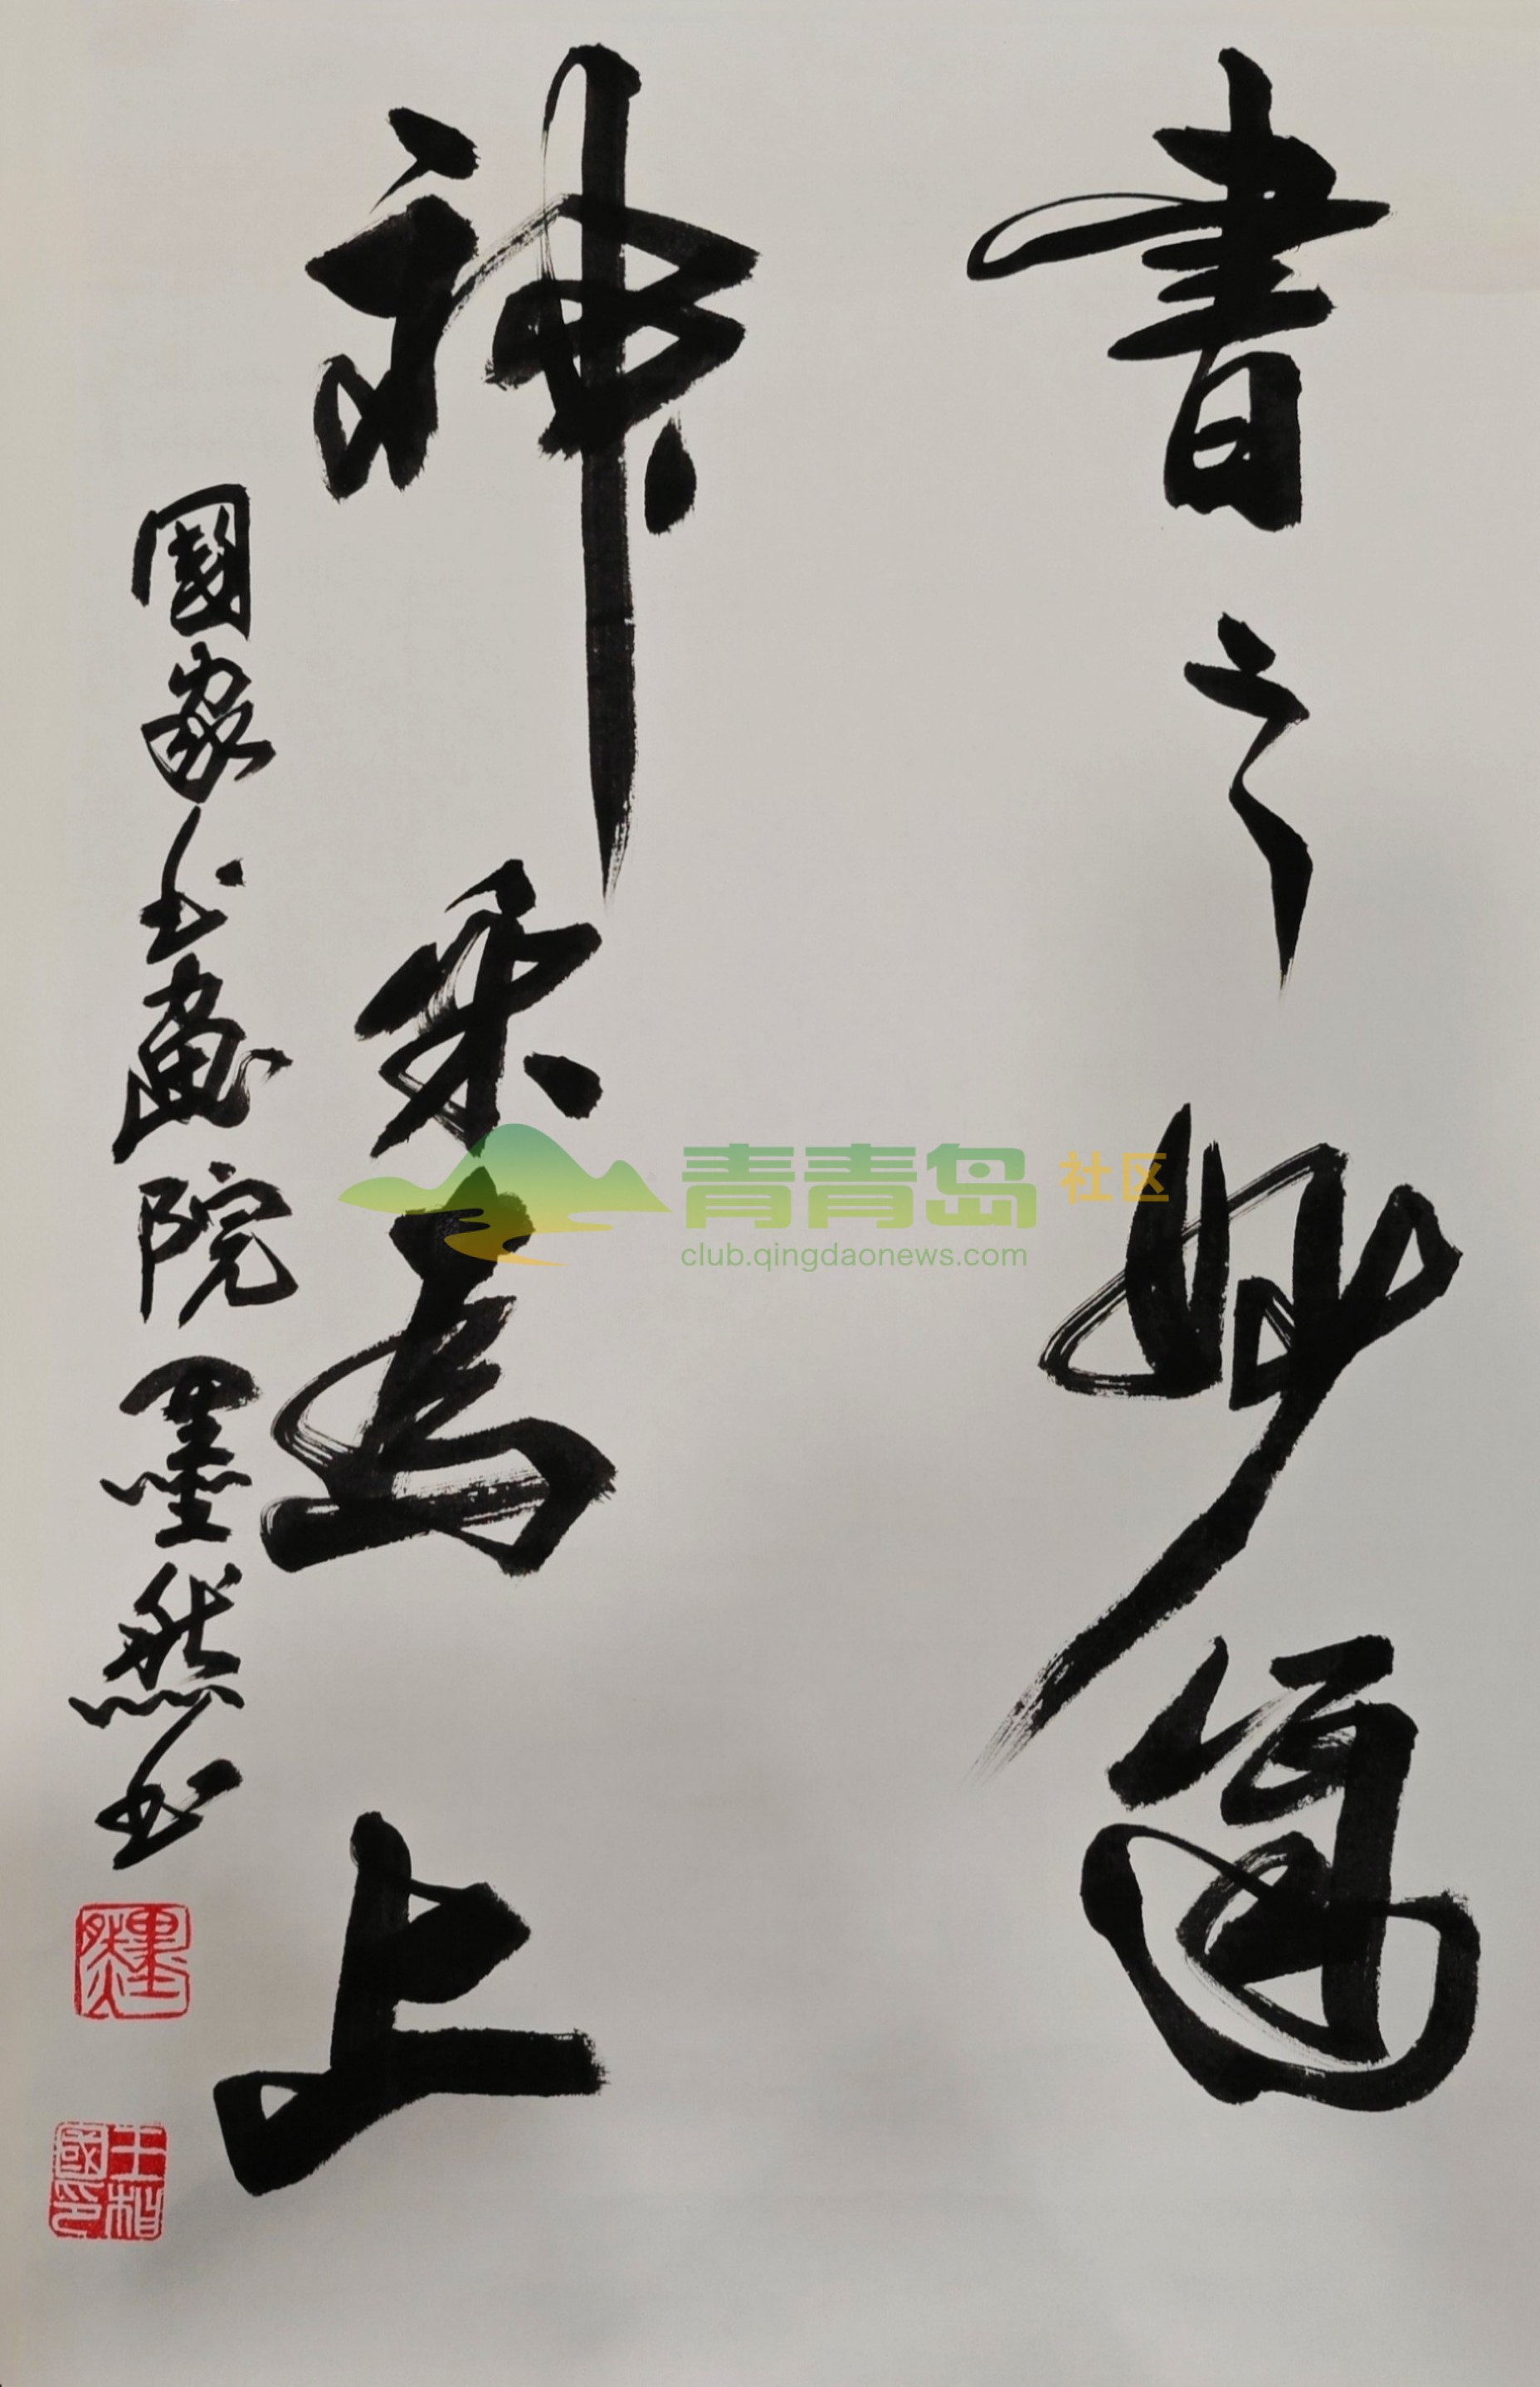 書之妙道
神采為上
國家书畫院墨然书
墨然
王相國印
青青岛社区
club.qingdaonews.com